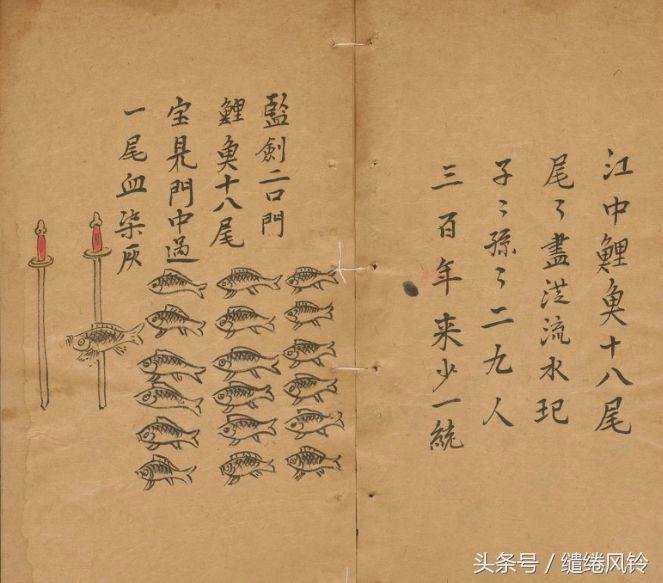 江中鯉魚十八尾
尾〻盡流水玘
子〻孫〻二九人
三百年来少一統
監劍二口門
鯉魚十八尾
宝見門中過
一尾血染灰
头条号 / 缱绻风铃